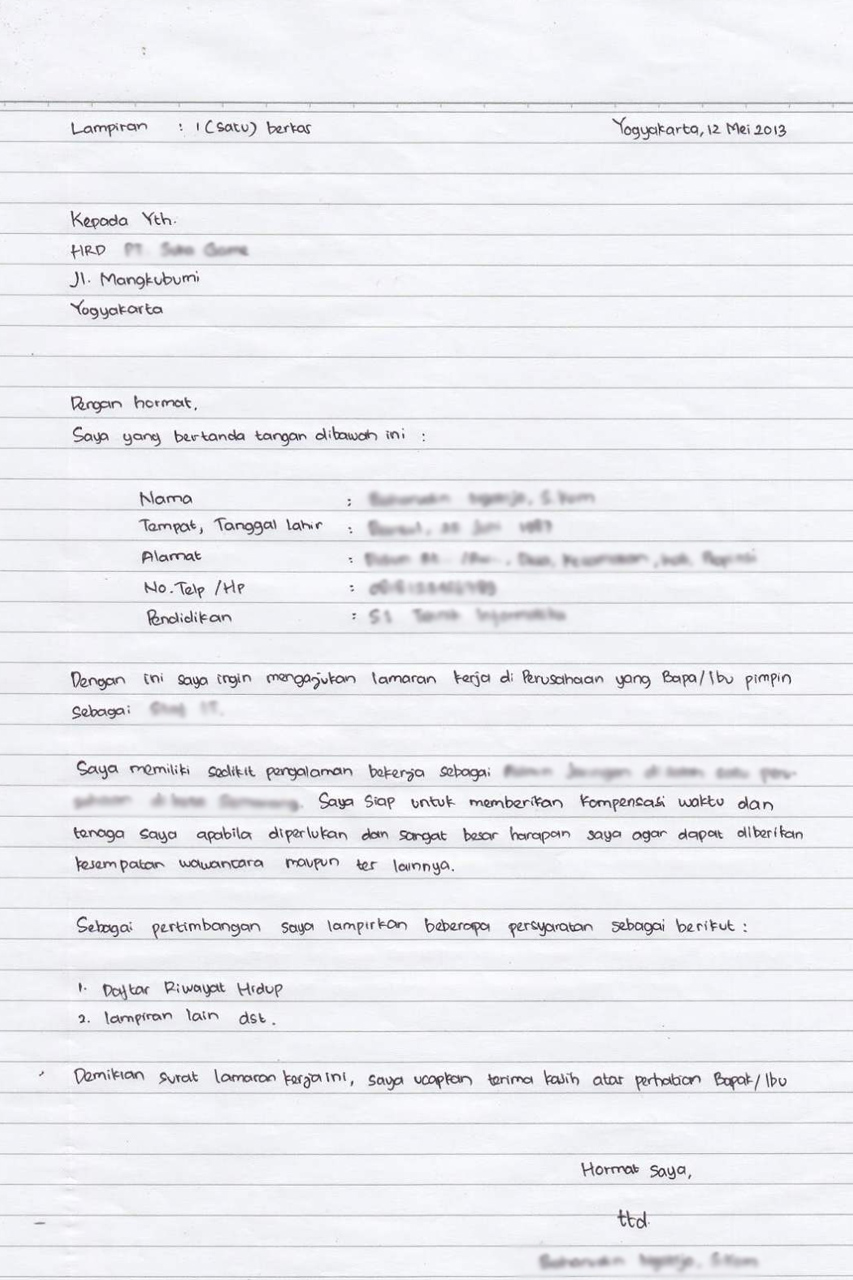 Lampiran : 1 (satu) berkas Yogyakarta, 12 Mei 2013
Kepada Yth.
HRD
Jl. Mangkubumi
Yogyakarta
Dengan hormat,
Saya yang bertanda tangan dibawah ini :
Nama :
Tempat, Tanggal lahir :
Alamat :
No. Telp / Hp :
Pendidikan :
Dengan ini saya ingin mengajukan lamaran kerja di Perusahaan yang Bapa/Ibu pimpin
sebagai
Saya memiliki sedikit pengalaman bekerja sebagai
Saya siap untuk memberikan kompensasi waktu dan
tenaga saya apabila diperlukan dan sangat besar harapan saya agar dapat diberikan
kesempatan wawancara maupun tes lainnya.
Sebagai pertimbangan saya lampirkan beberapa persyaratan sebagai berikut :
1. Daftar Riwayat Hidup
2. lampiran lain dst.
Demikian surat lamaran kerja ini, saya ucapkan terima kasih atas perhatian Bapak/Ibu
Hormat saya,
ttd.